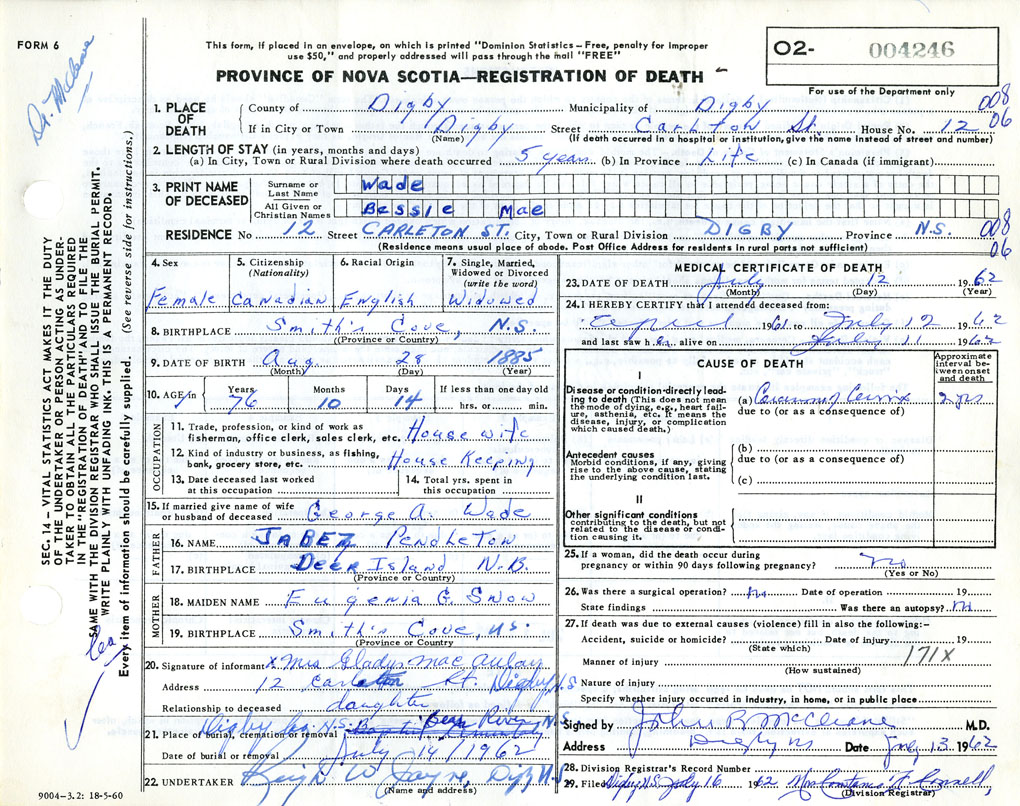 FORM 6
Dr. McCleave
This form, if placed in an envelope, on which is printed "Dominion Statistics – Free, penalty for improper
use $50," and properly addressed will pass through the mail "FREE"
PROVINCE OF NOVA SCOTIA—REGISTRATION OF DEATH
O2- 004246
For use of the Department only
SEC. 14 – VITAL STATISTICS ACT MAKES IT THE DUTY
OF THE UNDERTAKER OR PERSON ACTING AS UNDER-
TAKER TO OBTAIN ALL THE PARTICULARS REQUIRED
IN THE "REGISTRATION OF DEATH" AND TO FILE THE
SAME WITH THE DIVISION REGISTRAR WHO SHALL ISSUE THE BURIAL PERMIT.
WRITE PLAINLY WITH UNFADING INK. THIS IS A PERMANENT RECORD.
Every item of information should be carefully supplied. (See reverse side for instructions.)
1. PLACE OF DEATH
County of Digby Municipality of Digby 008
If in City or Town Digby Street Carlton St. House No. 12 06
(Name) (If death occurred in a hospital or institution, give the name instead of street and number)
2. LENGTH OF STAY (in years, months and days)
(a) In City, Town or Rural Division where death occurred 5 years (b) In Province Life (c) In Canada (if immigrant)
3. PRINT NAME OF DECEASED
Surname or Last Name Wade
All Given or Christian Names Bessie Mae
RESIDENCE No 12 Street CARLETON ST. City, Town or Rural Division DIGBY Province N.S. 008
(Residence means usual place of abode. Post Office Address for residents in rural parts not sufficient) 06
4. Sex Female
5. Citizenship (Nationality) Canadian
6. Racial Origin English
7. Single, Married, Widowed or Divorced (write the word) Widowed
8. BIRTHPLACE Smith's Cove, N.S.
(Province or Country)
9. DATE OF BIRTH Aug 28 1885
(Month) (Day) (Year)
10. AGE in Years 76 Months 10 Days 14 If less than one day old
hrs. or min.
OCCUPATION
11. Trade, profession, or kind of work as
fisherman, office clerk, sales clerk, etc. House wife
12. Kind of industry or business, as fishing,
bank, grocery store, etc. House Keeping
13. Date deceased last worked
at this occupation
14. Total yrs. spent in
this occupation
15. If married give name of wife
or husband of deceased George A. Wade
FATHER
16. NAME JABEZ Pendleton
17. BIRTHPLACE Deer Island N.B.
(Province or Country)
MOTHER
18. MAIDEN NAME Eugenia G. Snow
19. BIRTHPLACE Smith's Cove, N.S.
(Province or Country)
20. Signature of informant x Mrs Gladys MacAulay
Address 12 Carleton St. Digby N.S
Relationship to deceased daughter
21. Place of burial, cremation or removal Digby Co. N.S. Bear River, N.S
Date of burial or removal July 14/1962
22. UNDERTAKER W Jayne, Digby N.S
(Name and address)
9004-3.2: 18-5-60
MEDICAL CERTIFICATE OF DEATH
23. DATE OF DEATH July 12 1962
(Month) (Day) (Year)
24. I HEREBY CERTIFY that I attended deceased from:
April 1961 to July 12 1962
and last saw her alive on July 11 1962
CAUSE OF DEATH
Approximate interval between onset and death
I
Disease or condition directly lead-
ing to death (This does not mean
the mode of dying, e.g., heart fail-
ure, asthenia, etc. It means the
disease, injury, or complication
which caused death.)
(a) Carcinoma of Cervix 2 yrs
due to (or as a consequence of)
Antecedent causes
Morbid conditions, if any, giving
rise to the above cause, stating
the underlying condition last.
(b)
due to (or as a consequence of)
(c)
II
Other significant conditions
contributing to the death, but not
related to the disease or condi-
tion causing it.
25. If a woman, did the death occur during
pregnancy or within 90 days following pregnancy? No
(Yes or No)
26. Was there a surgical operation? No Date of operation 19
State findings Was there an autopsy? No
27. If death was due to external causes (violence) fill in also the following:-
Accident, suicide or homicide? Date of injury 19
(State which)
Manner of injury 171X
(How sustained)
Nature of injury
Specify whether injury occurred in industry, in home, or in public place
Signed by John R McCleave M.D.
Address Digby NS Date July 13 1962
28. Division Registrar's Record Number
29. Filed Digby N.S. July 16 1962 Mrs Constance Connell
(Division Registrar)